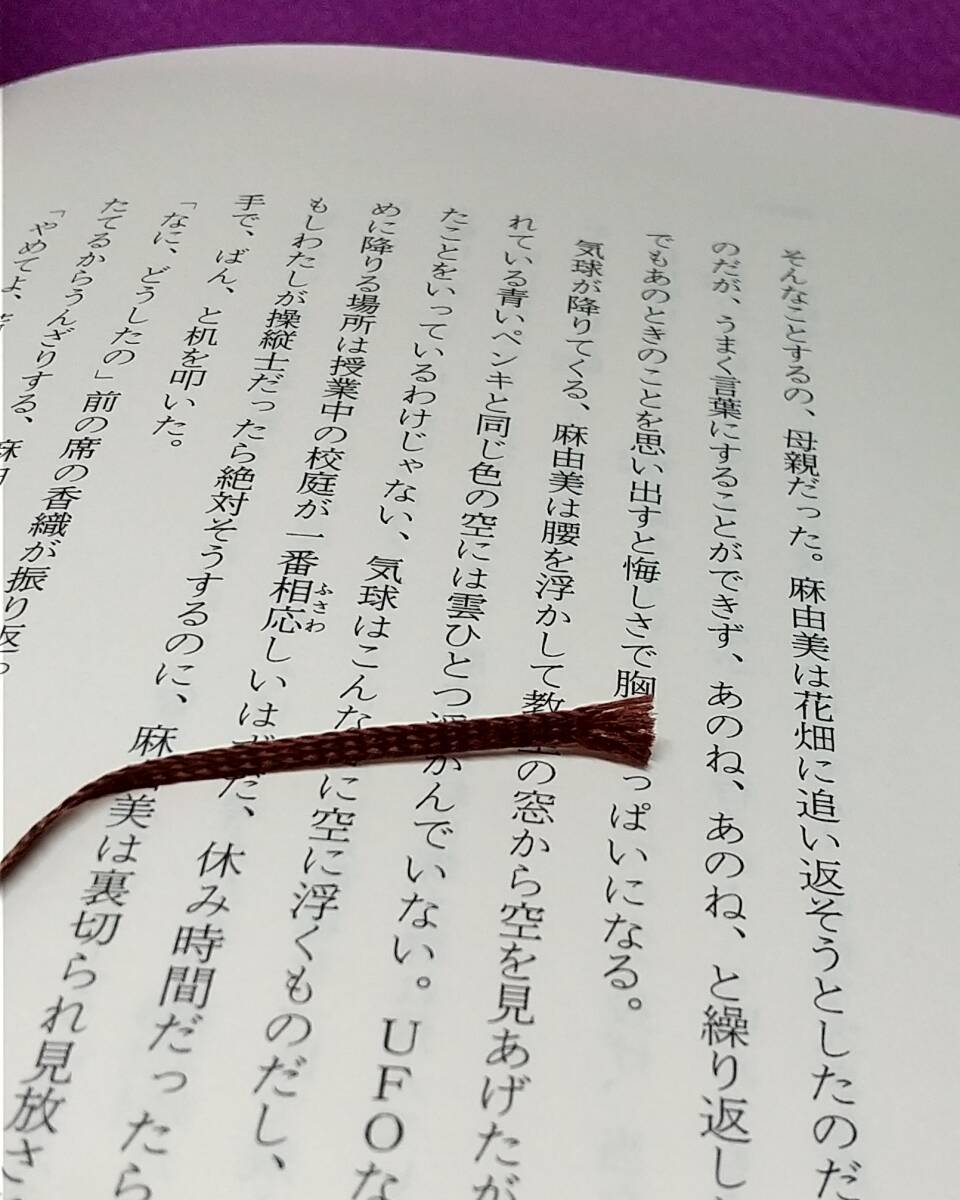 そんなことするの、母親だった。麻由美は花畑に追い返そうとしたのだ
のだが、うまく言葉にすることができず、あのね、あのね、と繰り返し
でもあのときのことを思い出すと悔しさで胸っぱいになる。
気球が降りてくる、麻由美は腰を浮かして教の窓から空を見あげたが
れている青いペンキと同じ色の空には雲ひとつかんでいない。UFOな
たことをいっているわけじゃない、気球はこんなに空に浮くものだし、
めに降りる場所は授業中の校庭が一番相応しいはだ、休み時間だったら
ふさわ
もしわたしが操縦士だったら絶対そうするのに、麻美は裏切られ見放さ
手で、ばん、と机を叩いた。
「なに、どうしたの」前の席の香織が振り返っ
たてるからうんざりする、麻
「やめてよ、